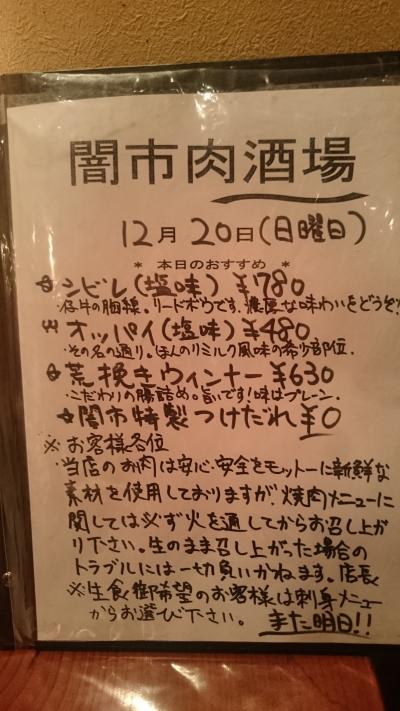 闇市肉酒場
12月 20日(日曜日)
* 本日のおすすめ *
☆シビレ(塩味) ¥780
・仔牛の胸線。リードボウです。濃厚な味わいをどうぞ
オッパイ(塩味) ¥480
・その名の通り。ほんのりミルク風味の希少部位.
☆荒挽きウィンナー ¥630
・こだわりの腸詰め。旨いです!味はプレーン.
☆闇市特製つけだれ ¥0
※お客様各位
・当店のお肉は安心・安全をモットーに新鮮な
素材を使用しておりますが、焼肉メニューに
関しては必ず火を通してからお召し上が
り下さい。生のまま召し上がった場合の
トラブルには一切負いかねます。店長
※生食御希望のお客様は刺身メニュー
からお選び下さい。 また明日!!